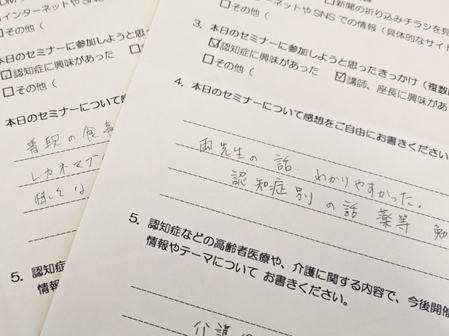 インターネットやSNS
□その他（
☑認知症に興味があった
□その他（
本日のセミナーについて感
普段の食事
レカネマブ
5. 認知症
情報
□新聞の折り込みチラシを見
ンターネットやSNSでの情報（具体的なサイト
□その他（
3. 本日のセミナーに参加しようと思ったきっかけ（複数
☑認知症に興味があった ☑講師、座長に興味があ
□その他（
4. 本日のセミナーについて感想をご自由にお書きください
両先生の話 わかりやすかった。
認知症別の話 薬等 勉
5. 認知症などの高齢者医療や、介護に関する内容で、今後開催
情報やテーマについて お書きください。
介護